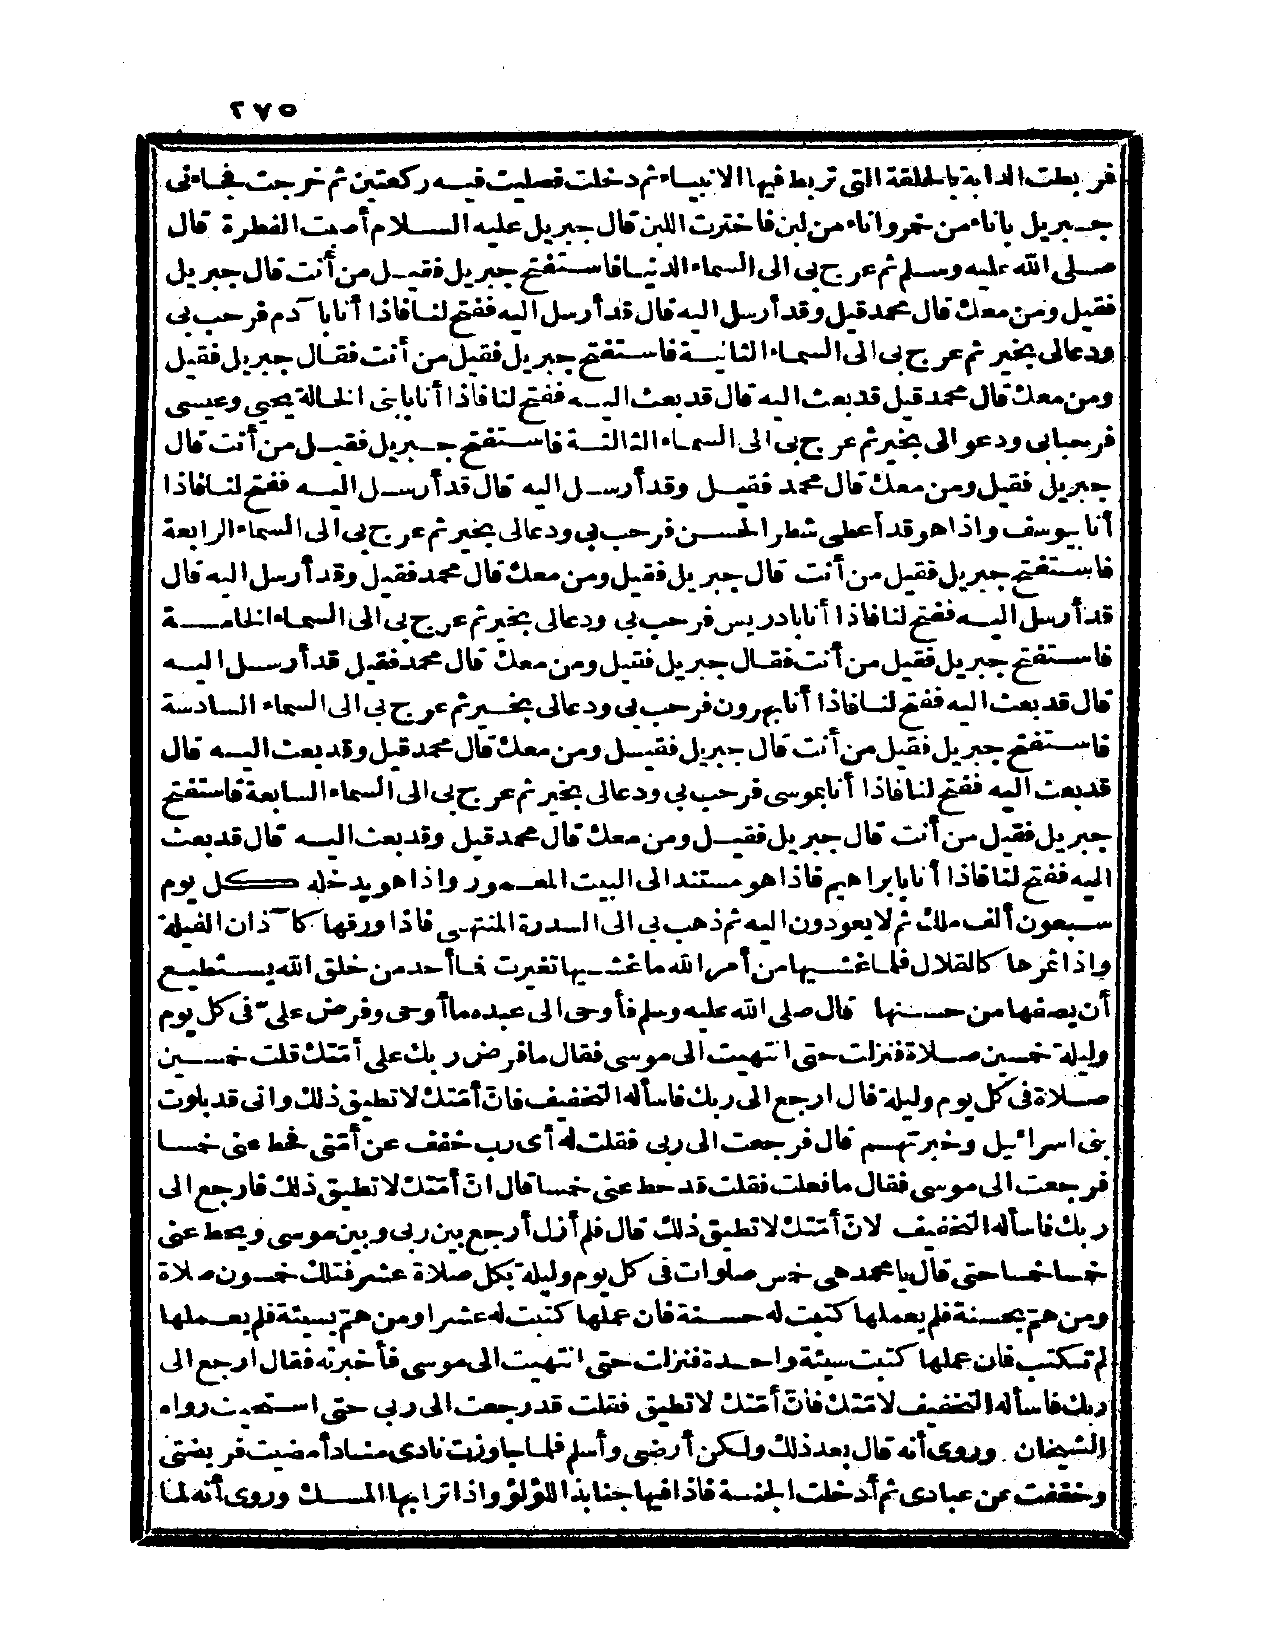 ٢٧٥
فربطت الدابة بالحلقة التى تربط فيها الانبياء ثم دخلت فصليت فيه ركعتين ثم خرجت فجاءنى
جبريل باناء من خمر واناء من لبن فاخترت اللبن قال جبريل عليه السلام أصبت الفطرة قال
صلى الله عليه وسلم ثم عرج بى الى السماء الدنيا فاستفتح جبريل فقيل من أنت قال جبريل
فقيل ومن معك قال محمد قيل وقد أرسل اليه قال قد أرسل اليه ففتح لنا فاذا أنا باآدم فرحب بى
ودعالى بخير ثم عرج بى الى السماء الثانية فاستفتح جبريل فقيل من أنت فقال جبريل فقيل
ومن معك قال محمد قيل قد بعث اليه قال قد بعث اليه ففتح لنا فاذا أنا بابنى الخالة يحيى وعيسى
فرحبابى ودعوالى بخير ثم عرج بى الى السماء الثالثة فاستفتح جبريل فقيل من أنت قال
جبريل فقيل ومن معك قال محمد فقيل وقد أرسل اليه قال قد أرسل اليه ففتح لنا فاذا
أنا بيوسف واذا هو قد أعطى شطر الحسن فرحب بى ودعالى بخير ثم عرج بى الى السماء الرابعة
فاستفتح جبريل فقيل من أنت قال جبريل فقيل ومن معك قال محمد فقيل وقد أرسل اليه قال
قد أرسل اليه ففتح لنا فاذا أنا بادريس فرحب بى ودعالى بخير ثم عرج بى الى السماء الخامسة
فاستفتح جبريل فقيل من أنت فقال جبريل فقيل ومن معك قال محمد فقيل قد أرسل اليه
قال قد بعث اليه ففتح لنا فاذا أنا بهرون فرحب بى ودعالى بخير ثم عرج بى الى السماء السادسة
فاستفتح جبريل فقيل من أنت قال جبريل فقيل ومن معك قال محمد قيل وقد بعث اليه قال
قد بعث اليه ففتح لنا فاذا أنا بموسى فرحب بى ودعالى بخير ثم عرج بى الى السماء السابعة فاستفتح
جبريل فقيل من أنت قال جبريل فقيل ومن معك قال محمد قيل وقد بعث اليه قال قد بعث
اليه ففتح لنا فاذا أنا بابراهيم فاذا هو مستند الى البيت المعمور واذا هو يدخله كل يوم
سبعون ألف ملك ثم لا يعودون اليه ثم ذهب بى الى السدرة المنتهى فاذا ورقها كآذان الفيلة
واذا ثمرها كالقلال فلما غشيها من أمر الله ما غشيها تغيرت فما أحد من خلق الله يستطيع
أن يصفها من حسنها قال صلى الله عليه وسلم فأوحى الى عبده ما أوحى وفرض علىّ فى كل يوم
وليلة خمسين صلاة فنزلت حتى انتهيت الى موسى فقال ما فرض ربك على أمتك قلت خمسين
صلاة فى كل يوم وليلة قال ارجع الى ربك فاسأله التخفيف فانّ أمتك لا تطيق ذلك وانى قد بلوت
بنى اسرائيل وخبرتهم قال فرجعت الى ربى فقلت له أى رب خفف عن أمتى فحط عنى خمسا
فرجعت الى موسى فقال ما فعلت فقلت قد حط عنى خمسا قال انّ أمتك لا تطيق ذلك فارجع الى
ربك فاسأله التخفيف لانّ أمتك لا تطيق ذلك قال فلم أزل أرجع بين ربى وبين موسى ويحط عنى
خمسا خمسا حتى قال يا محمد هى خمس صلوات فى كل يوم وليلة بكل صلاة عشر فتلك خمسون صلاة
ومن همّ بحسنة فلم يعملها كتبت له حسنة فان عملها كتبت له عشرا ومن همّ بسيئة فلم يعملها
لم تكتب فان عملها كتبت سيئة واحدة فنزلت حتى انتهيت الى موسى فأخبرته فقال ارجع الى
ربك فاسأله التخفيف لامتك فانّ أمتك لا تطيق فقلت قد رجعت الى ربى حتى استحييت رواه
الشيخان وروى أنه قال بعد ذلك ولكن أرضى وأسلم فلما جاوزت نادى مناد أمضيت فريضتى
وخففت عن عبادى ثم أدخلت الجنة فاذا فيها جنابذ اللؤلؤ واذا ترابها المسك وروى أنه لما